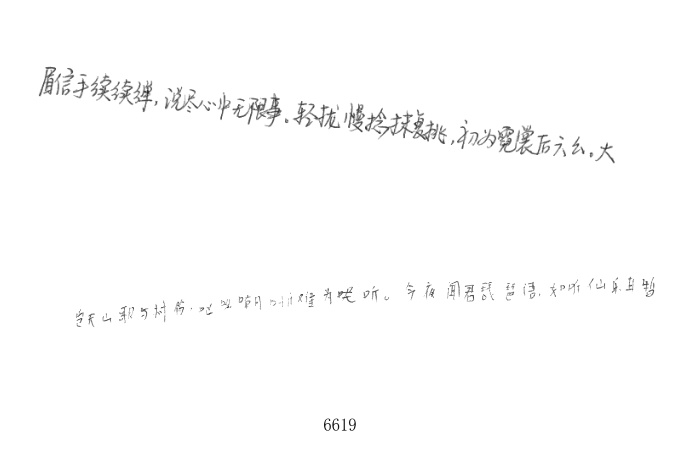 眉信手续续弹,说尽心中无限事。轻拢慢捻抹复挑,初为霓裳后六么。大
岂无山歌与村笛,呕哑嘲哳难为听。今夜闻君琵琶语,如听仙乐耳暂
6619